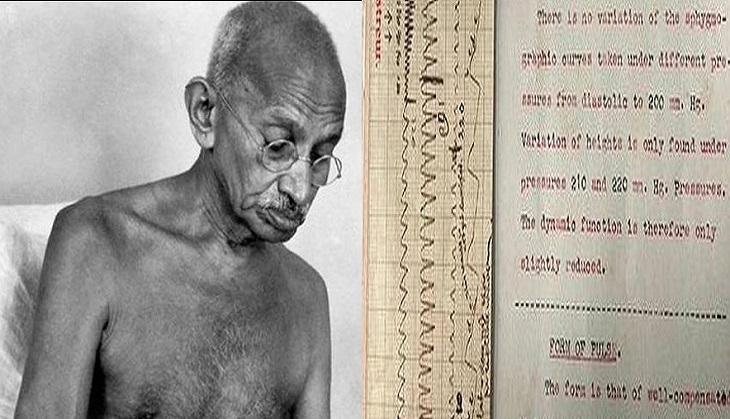 There is no variation of the sphygmo-
graphic curves taken under different pre-
ssures from diastolic to 200 mm. Hg.
Variation of heights is only found under
pressures 210 and 220 mm. Hg. Pressures.
The dynamic function is therefore only
slightly reduced.
FORM OF PULSE.
The form is that of well-compensated